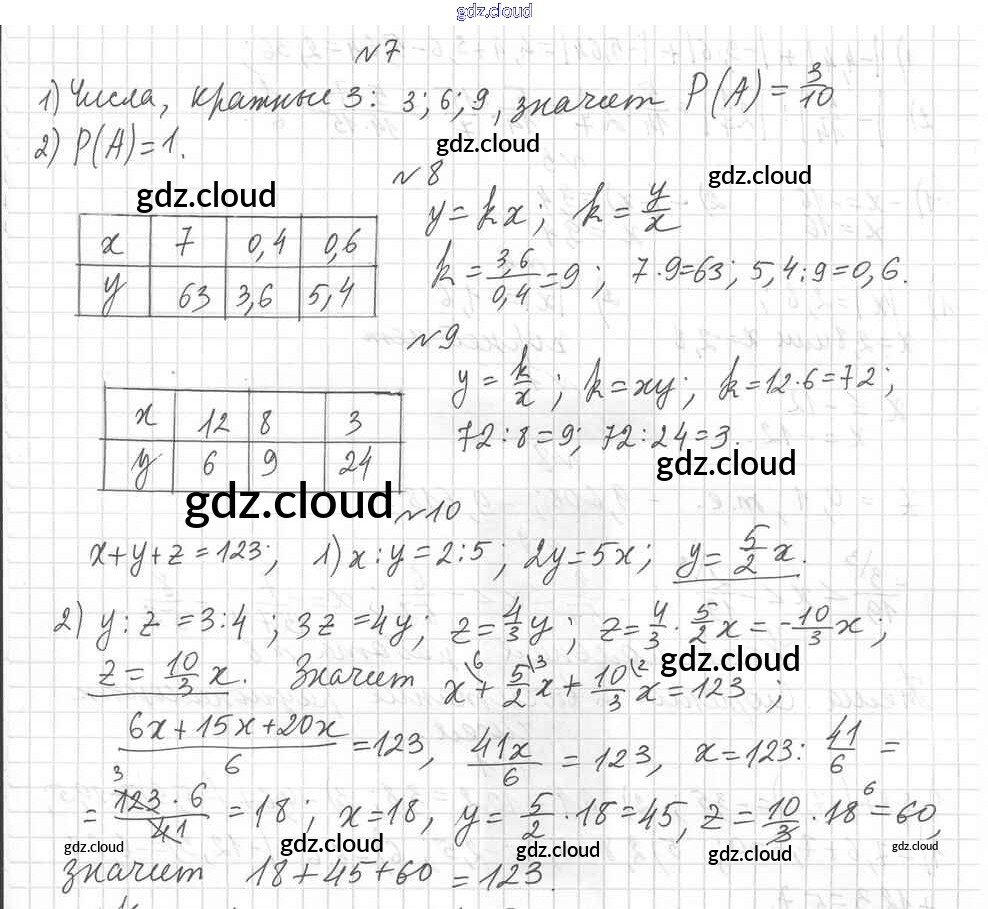 gdz.cloud
№7
1) Числа, кратные 3: 3; 6; 9, значит P(A) = 3/10
2) P(A) = 1.
gdz.cloud
gdz.cloud
№8
gdz.cloud
y = kx; k = y/x
x 7 0,4 0,6
y 63 3,6 5,4
k = 3,6/0,4 = 9; 7·9=63; 5,4:9=0,6.
№9
y = k/x; k = xy; k = 12·6=72;
x 12 8 3
y 6 9 24
72:8=9; 72:24=3.
gdz.cloud
gdz.cloud
№10
x+y+z=123; 1) x:y=2:5; 2y=5x; y = 5/2 x.
2) y:z=3:4; 3z=4y; z = 4/3 y; z = 4/3 · 5/2 x = -10/3 x;
gdz.cloud
z = 10/3 x. Значит x\6 + 5/2\3 x + 10/3\2 x = 123;
(6x+15x+20x)/6 = 123, 41x/6 = 123, x = 123 : 41/6 =
= 3 123·6/41 1 = 18; x=18, y = 5/2 · 18 = 45, z = 10/3 · 18 6 = 60,
gdz.cloud
gdz.cloud
gdz.cloud
gdz.cloud
gdz.cloud
значит 18+45+60 = 123.